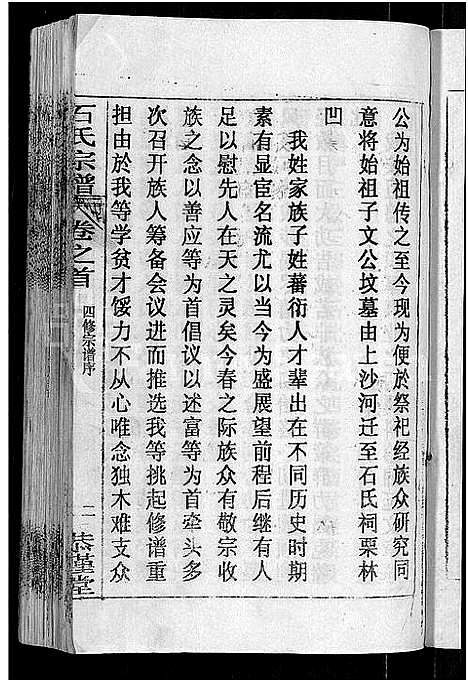 公为始祖传之至今现为便於祭祀经族众研究同
意将始祖子文公坟墓由上沙河迁至石氏祠栗林
凹
我姓家族子姓蕃衍人才辈出在不同历史时期
素有显宦名流尤以当今为盛展望前程后继有人
足以慰先人在天之灵矣今春之际族众有敬宗收
族之念以善应等为首倡议以述富等为首牵头多
次召开族人筹备会议进而推选我等挑起修谱重
担由於我等学贫才馁力不从心唯念独木难支众
石氏宗谱
卷之首
四修宗谱序
二
恭谨堂